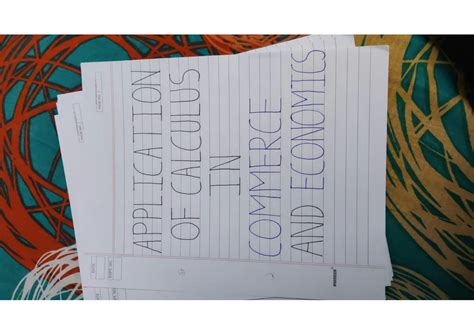 APPLICATION
OF CALCULUS
IN
COMMERCE
AND ECONOMICS